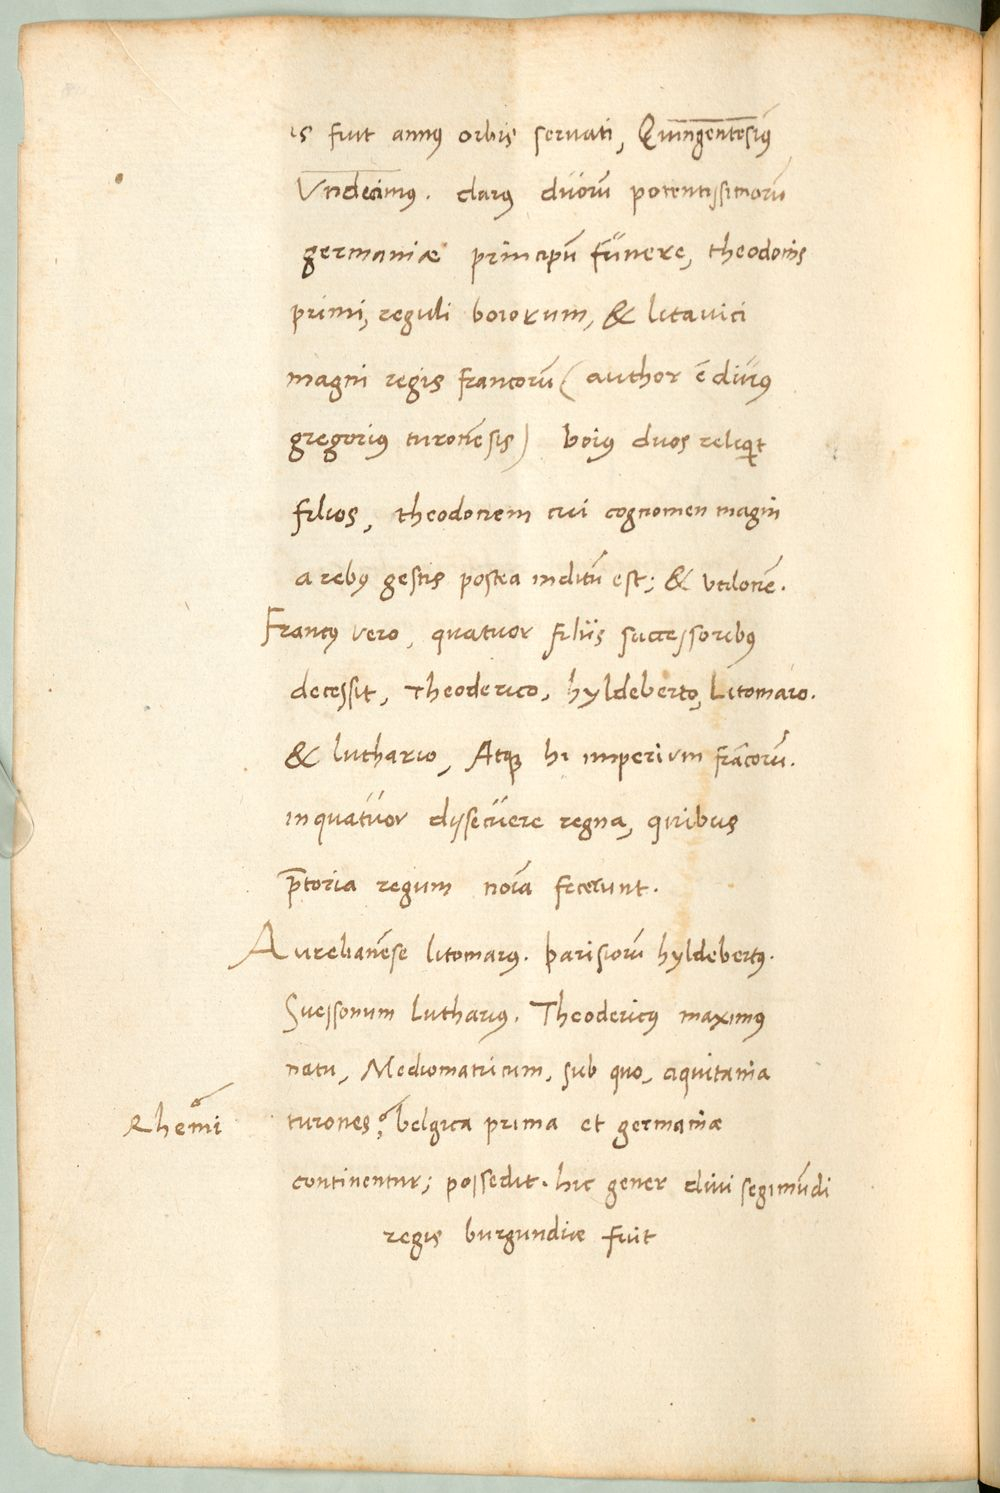 is fuit annus orbis seruati, Quingentesiũs
Vndecimus. clarus duorũ potentissimorũ
germaniæ principũ funere, theodonis
primi, reguli boiorum, & litauici
magni regis francorũ (author ẽ diuus
gregorius turonẽsis) boius duos reliqit
filios, theodonem cui cognomen magni
a rebus gestis postea inditũ est; & vtilonẽ.
Francus vero, quatuor filiis successoribus
decessit, Theoderico, hyldeberto, Litomaro.
& luthario, Atque hi imperium frãcorũ.
in quatuor dissecuere regna, quibus
p̃toria regum noĩa fecerunt.
Aurelianẽse litomarus. parisiorũ hyldebertus.
Suessonum lutharius. Theodericus maximus
natu, Mediomatricum, sub quo, aquitania
turones, belgica prima et germaniæ
Rhemĩ
continentur; possedit. hic gener diui segimũdi
regis burgundiæ fuit